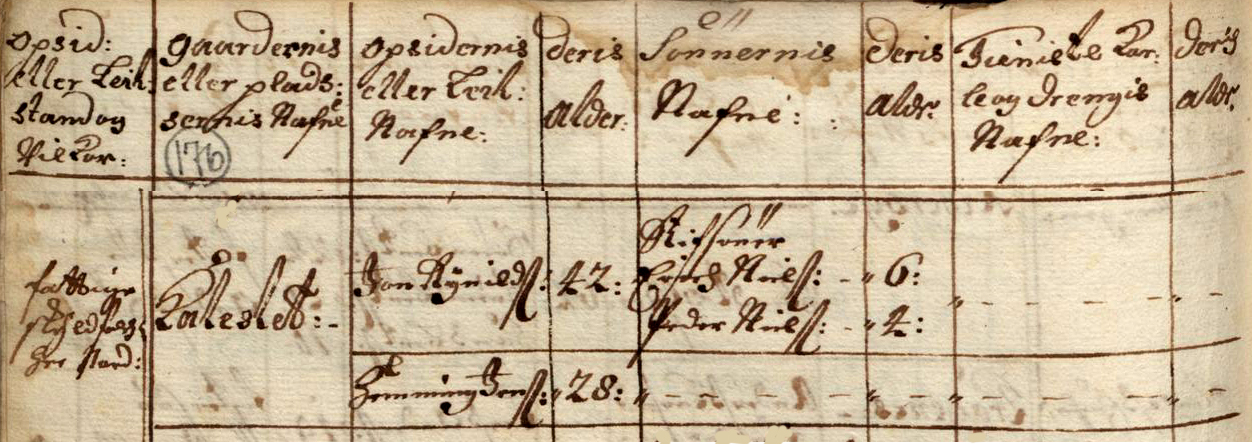 Opsid:
eller Leil:
stand og
Vilkor:
Gaardernis
eller plads:
sernis Nafne
176
Opsidernis
eller Leil:
Nafne:
deris
alder:
Sönnernis
Nafne:
deris
aldr:
Tieniste Kar:
le og drengis
Nafne:
deris
aldr.
fattige
Kaleslet:
Jon Kynilds:
42:
Stifsöner
Erich Niels:
6:
Peder Niels:
4:
Hemming Jens:
28: